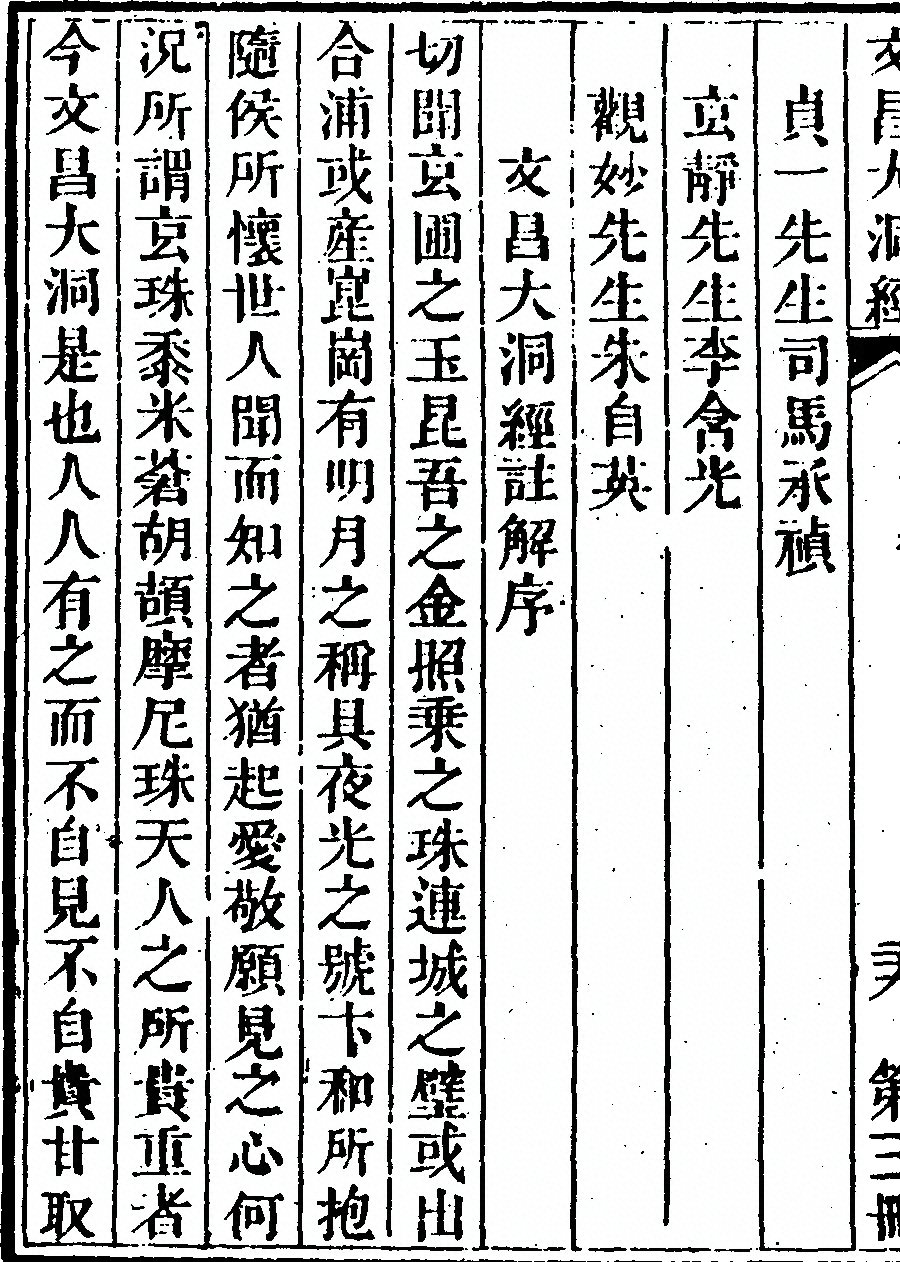 文昌大洞經
第三冊
貞一先生司馬承禎
玄靜先生李含光
觀妙先生朱自英
文昌大洞經註解序
切聞玄圃之玉昆吾之金照乗之珠連城之璧或出
合浦或産崑崗有明月之稱具夜光之號卞和所抱
隨侯所懷世人聞而知之者猶起愛敬願見之心何
况所謂玄珠黍米菩胡頡摩尼珠天人之所貴重者
今文昌大洞是也人人有之而不自見不自貴甘取